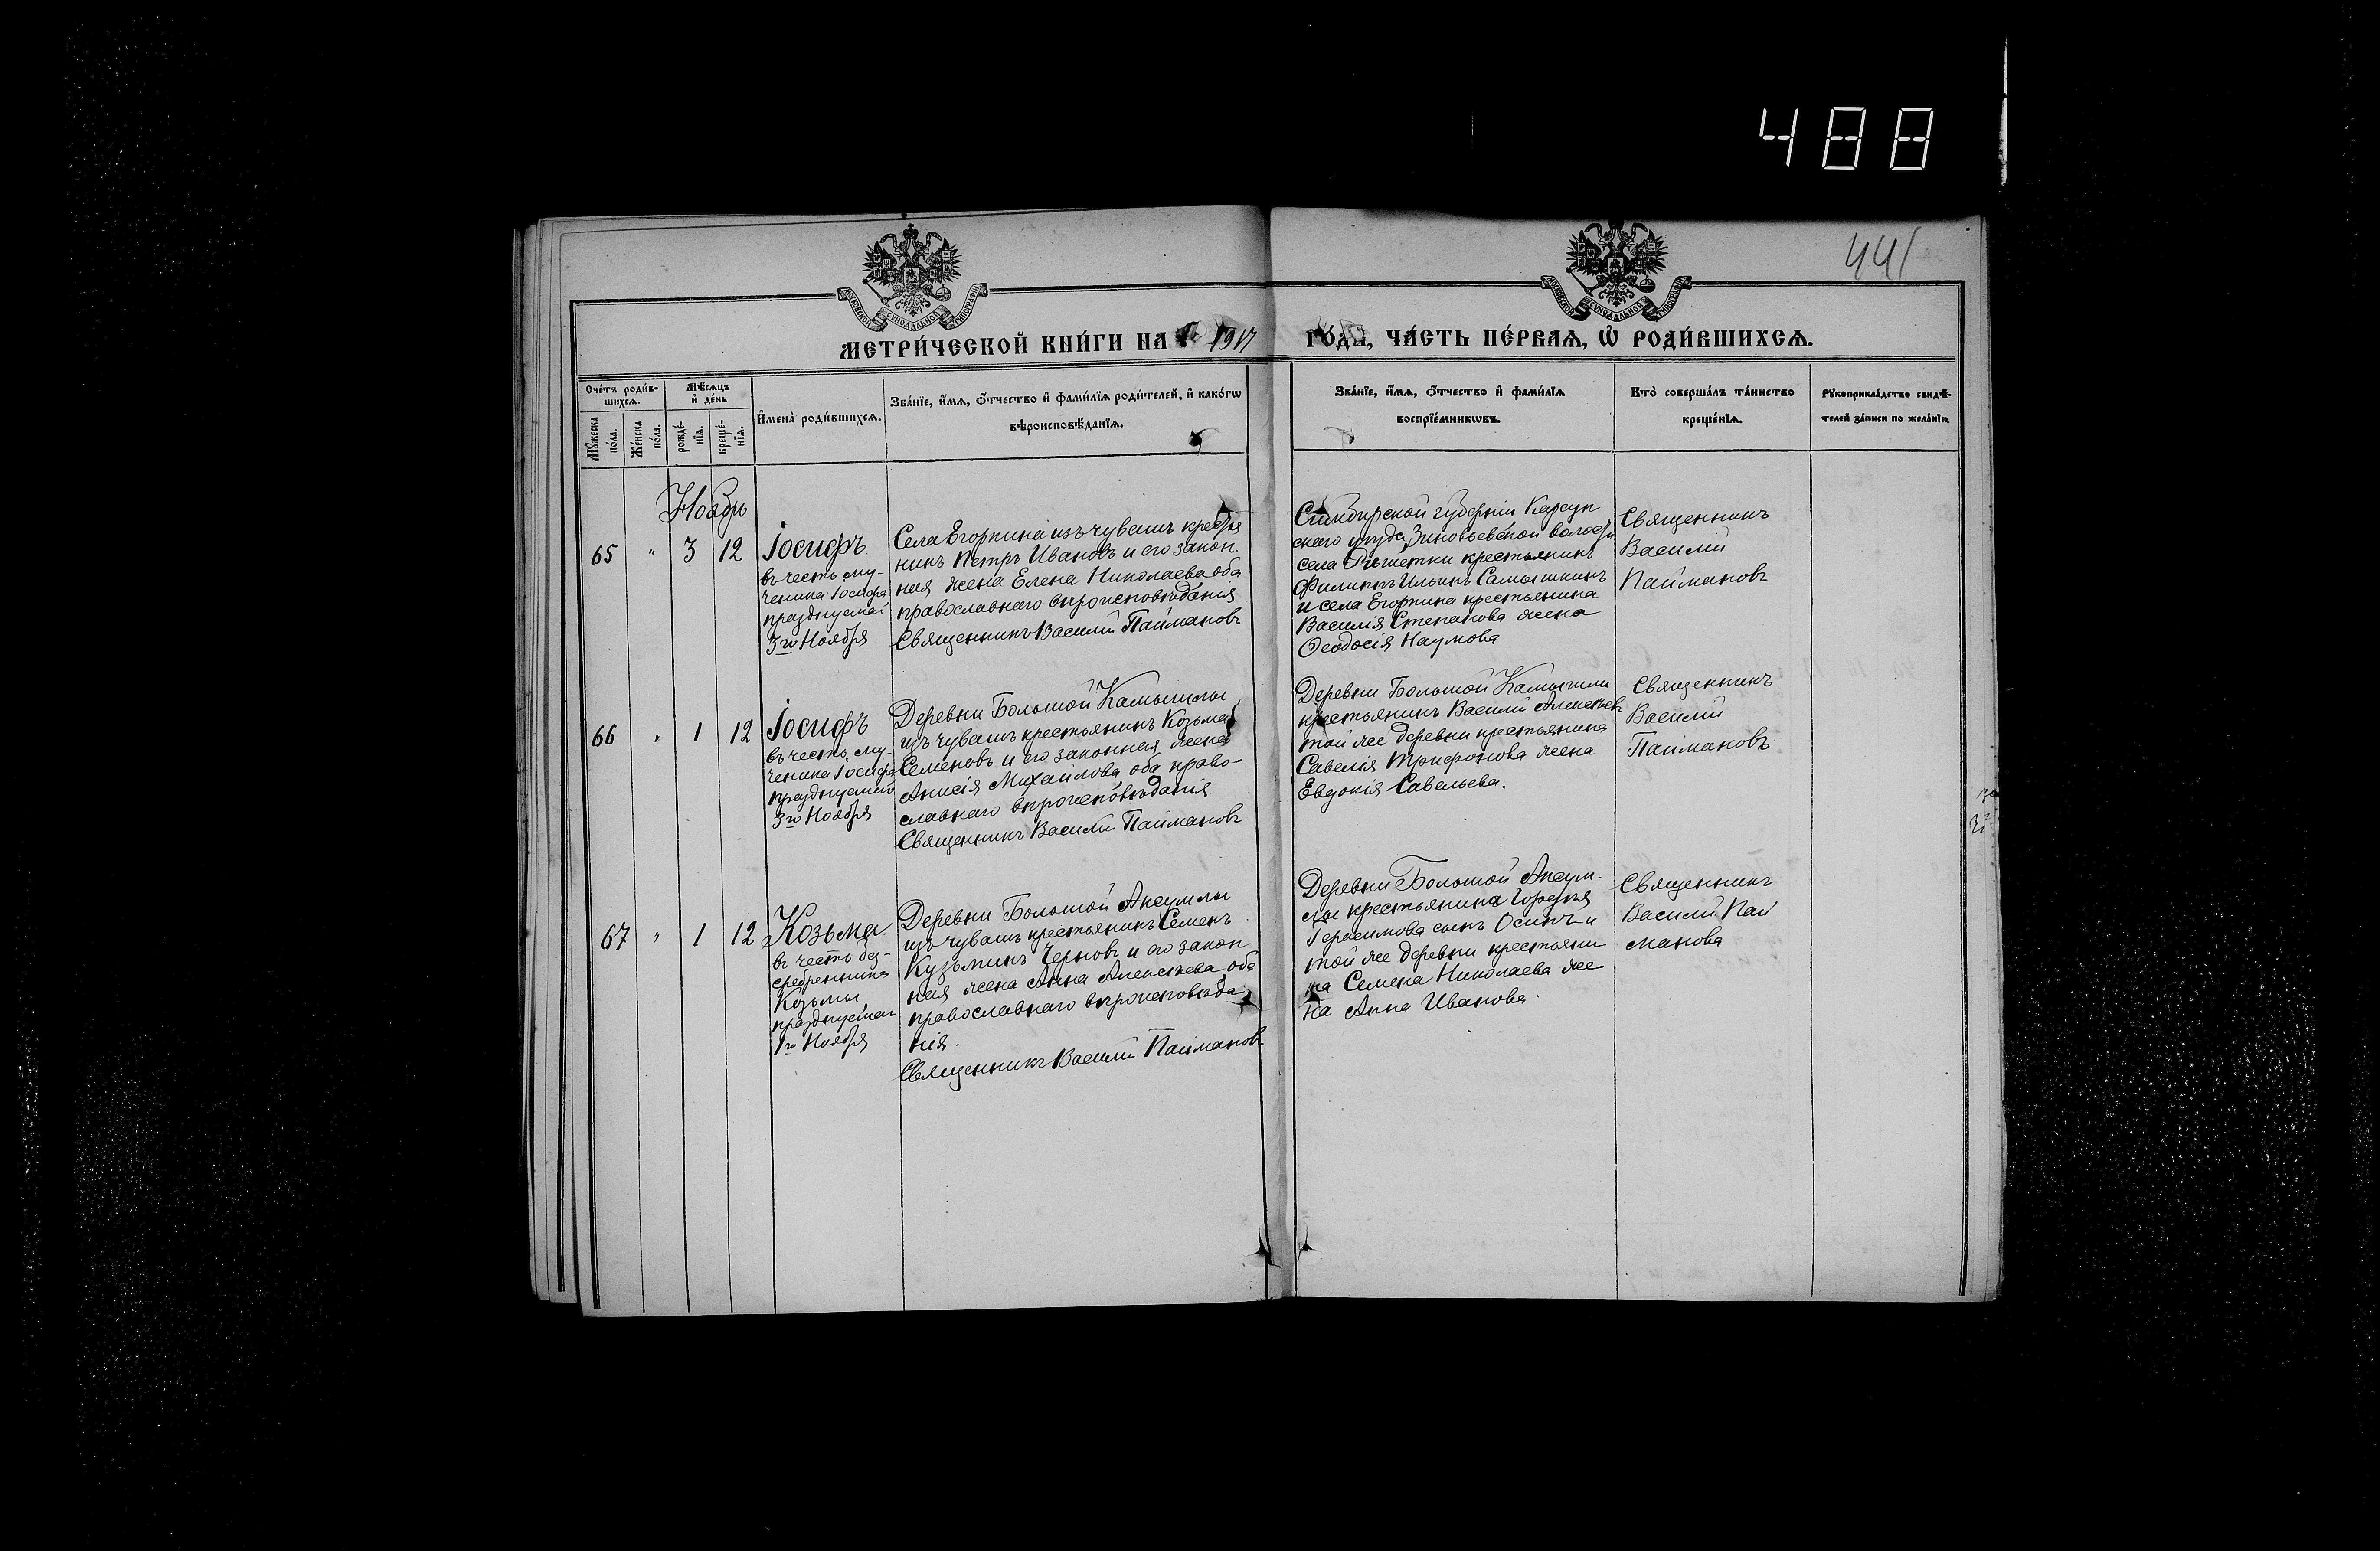 488
441
МОСКОВСКОЙ СѴНОДАЛЬНОЙ ТИПОГРАФІИ
МОСКОВСКОЙ СѴНОДАЛЬНОЙ ТИПОГРАФІИ
МЕТРИ́ЧЕСКОЙ КНИ́ГИ НА 1917 ГО́ДЪ, ЧА́СТЬ ПЕ́РВАѦ, Ѡ҆ РОДИ́ВШИХСѦ.
Сче́тъ роди́в-
шихсѧ.
Мꙋ́жеска
по́ла.
Же́нска
по́ла.
Мѣ́сѧцъ
и҆ де́нь
рожде́-
нїѧ.
креще́-
нїѧ.
И҆мена̀ роди́вшихсѧ.
Зва́нїе, и҆́мѧ, ѻ҆́тчество и҆ фами́лїѧ роди́телей, и҆ како́гѡ
вѣ́роисповѣ́данїѧ.
Зва́нїе, и҆́мѧ, ѻ҆́тчество и҆ фами́лїѧ
воспрїе́мникѡвъ.
Кто̀ соверша́лъ та́инство
креще́нїѧ.
Рꙋкоприкла́дство свидѣ́-
телей за́писи по жела́нїю.
Ноябрь
65 " 3 12
Іосифъ
въ честь му-
ченика Іосифа
празднуемаго
3го Ноября
Села Егоркина изъ чувашъ крестья
нинъ Петръ Ивановъ и его закон.
ная жена Елена Николаева оба
православнаго вѣроисповѣданія
Священникъ Василій Паймановъ
Симбирской губерніи Карсун
скаго уѣзда, Зиновьевской волости
села крестьянинъ
Филиппъ Ильинъ Самышкинъ
и села Егоркина крестьянина
Василія Степанова жена
Ѳеодосія Наумова
Священникъ
Василій
Паймановъ
66 " 1 12
Іосифъ
въ честь му-
ченика Іосифа
празднуемаго
3го Ноября
Деревни Большой Камышлы
изъ чувашъ крестьянинъ Козьма
Семеновъ и его законная жена
Анисія Михаилова оба право-
славнаго вѣроисповѣданія
Священникъ Василій Паймановъ
Деревни Большой Камышли
крестьянинъ Василій Алексѣевъ
той же деревни крестьянина
Савелія Трифонова жена
Евдокія Савельева.
Священникъ
Василій
Паймановъ
67 " 1 12
Козьма
въ честь без-
сребренника
Козьмы
празднуемаго
1го Ноября
Деревни Большой Аксумлы
изъ чувашъ крестьянинъ Семенъ
Кузьминъ Черновъ и его закон
ная жена Анна Алексѣева оба
православнаго вѣроисповѣда
нія.
Священникъ Василій Паймановъ
Деревни Большой Аксум-
лы крестьянина
Герасимова сынъ Осипъ и
той же деревни крестьяни
на Семена Николаева же
на Анна Иванова.
Священникъ
Василій Пай
мановъ